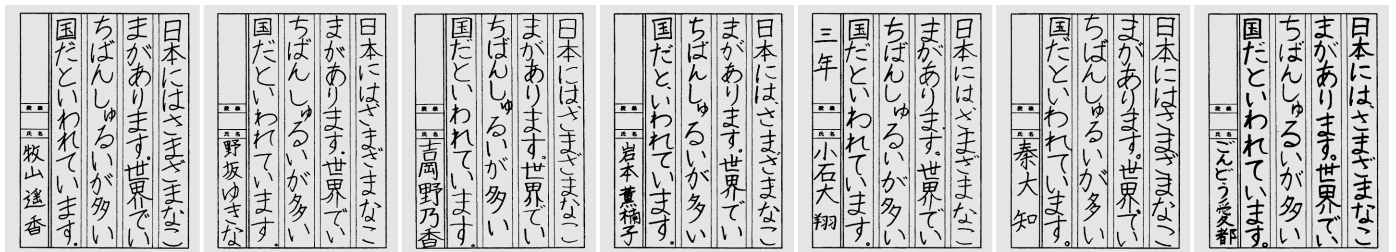 日本にはさまざまなこ
まがあります。世界でい
ちばんしゅるいが多い
国だといわれています。
段級
氏名
牧山遥香
日本にはさまざまなこ
まがあります。世界でい
ちばんしゅるいが多い
国だといわれています。
段級
氏名
野坂ゆきな
日本にはさまざまなこ
まがあります。世界でい
ちばんしゅるいが多い
国だといわれています。
段級
氏名
吉岡野乃香
日本にはさまざまなこ
まがあります。世界でい
ちばんしゅるいが多い
国だといわれています。
段級
氏名
岩本薫楠子
日本にはさまざまなこ
まがあります。世界でい
ちばんしゅるいが多い
国だといわれています。
三年
段級
氏名
小石大翔
日本にはさまざまなこ
まがあります。世界でい
ちばんしゅるいが多い
国だといわれています。
段級
氏名
秦大知
日本にはさまざまなこ
まがあります。世界で、い
ちばんしゅるいが多い
国だといわれています。
段級
氏名
ごんどう愛都